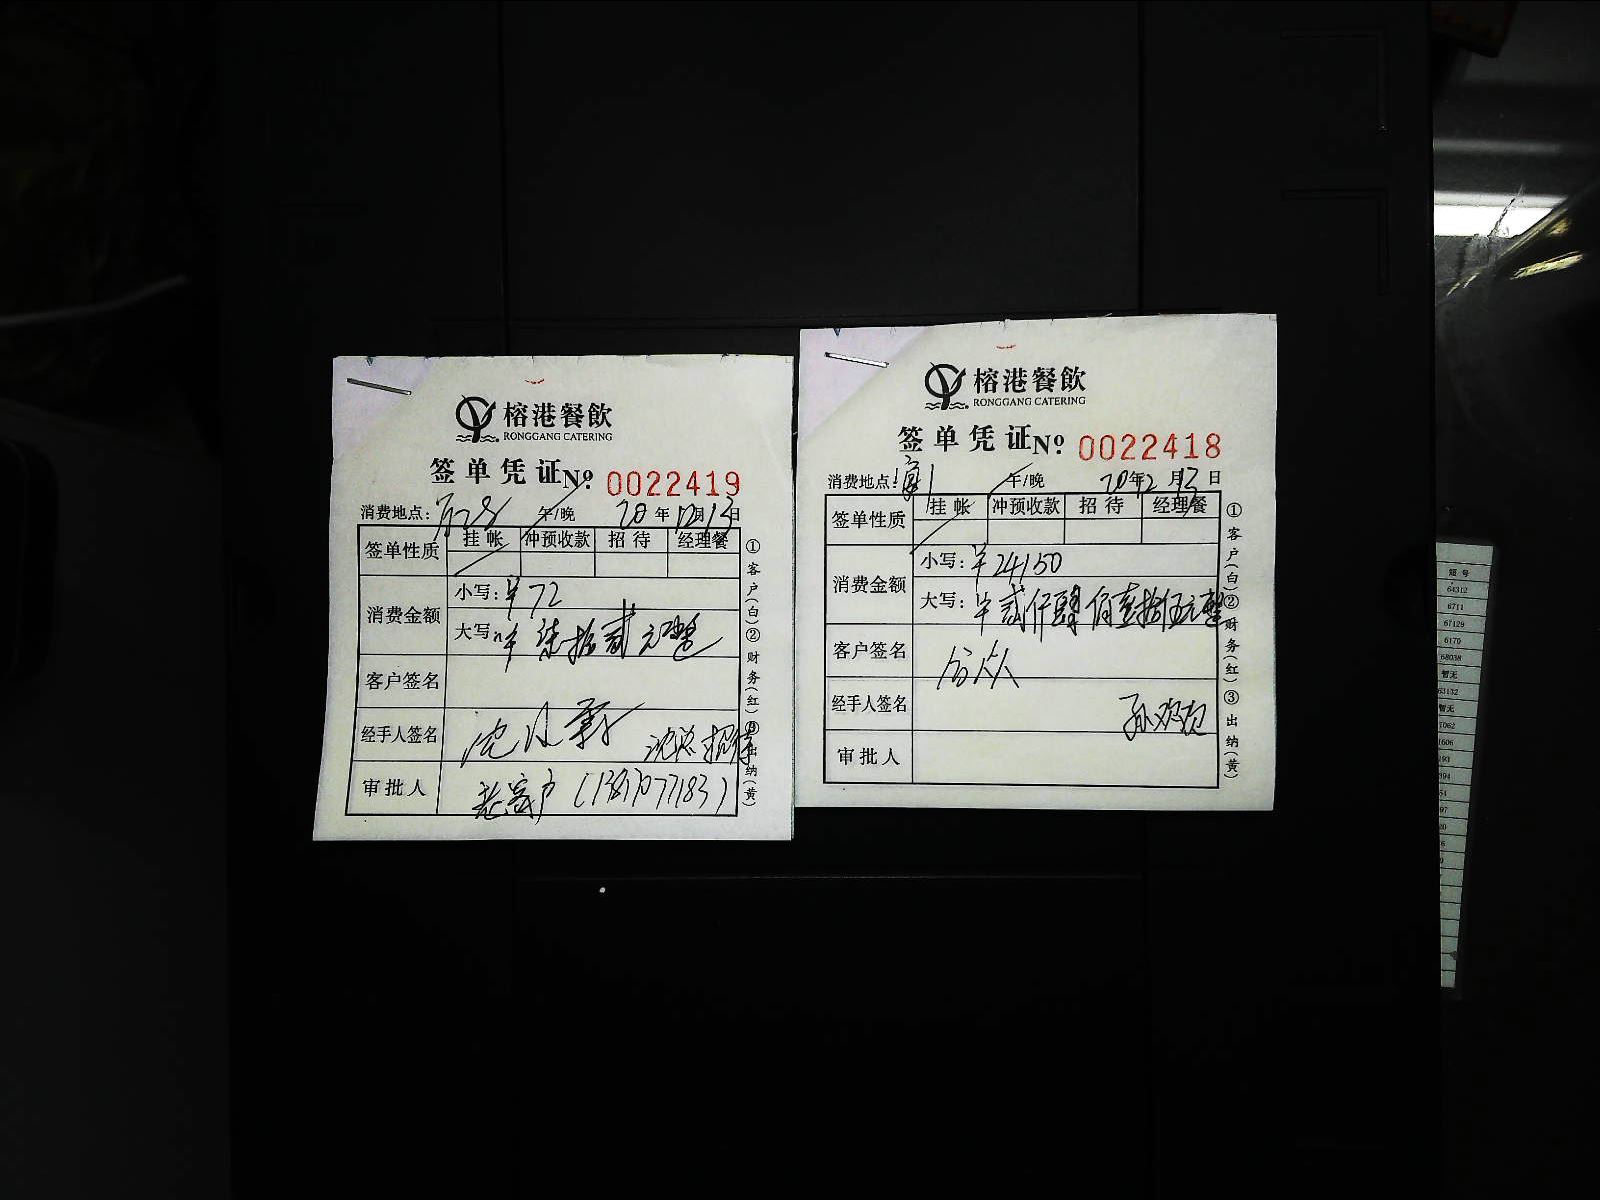 榕港餐飲
RONGGANG CATERING
签单凭证 No: 0022419
消费地点: 午/晚 20年12月13日
签单性质 挂帐 冲预收款 招待 经理餐
消费金额
小写: ¥72
大写: ¥柒拾贰元整
客户签名
经手人签名 沈 沈总招待
审批人 老客户
①客户(白)②财务(红)③出纳(黄)
榕港餐飲
RONGGANG CATERING
签单凭证 No: 0022418
消费地点: 午/晚 20年12月13日
签单性质 挂帐 冲预收款 招待 经理餐
消费金额
小写: ¥2415.0
大写: ¥贰仟肆佰壹拾伍元整
客户签名
经手人签名 孙
审批人
①客户(白)②财务(红)③出纳(黄)
短号
64312
6711
67129
6170
68038
暂无
63132
暂无